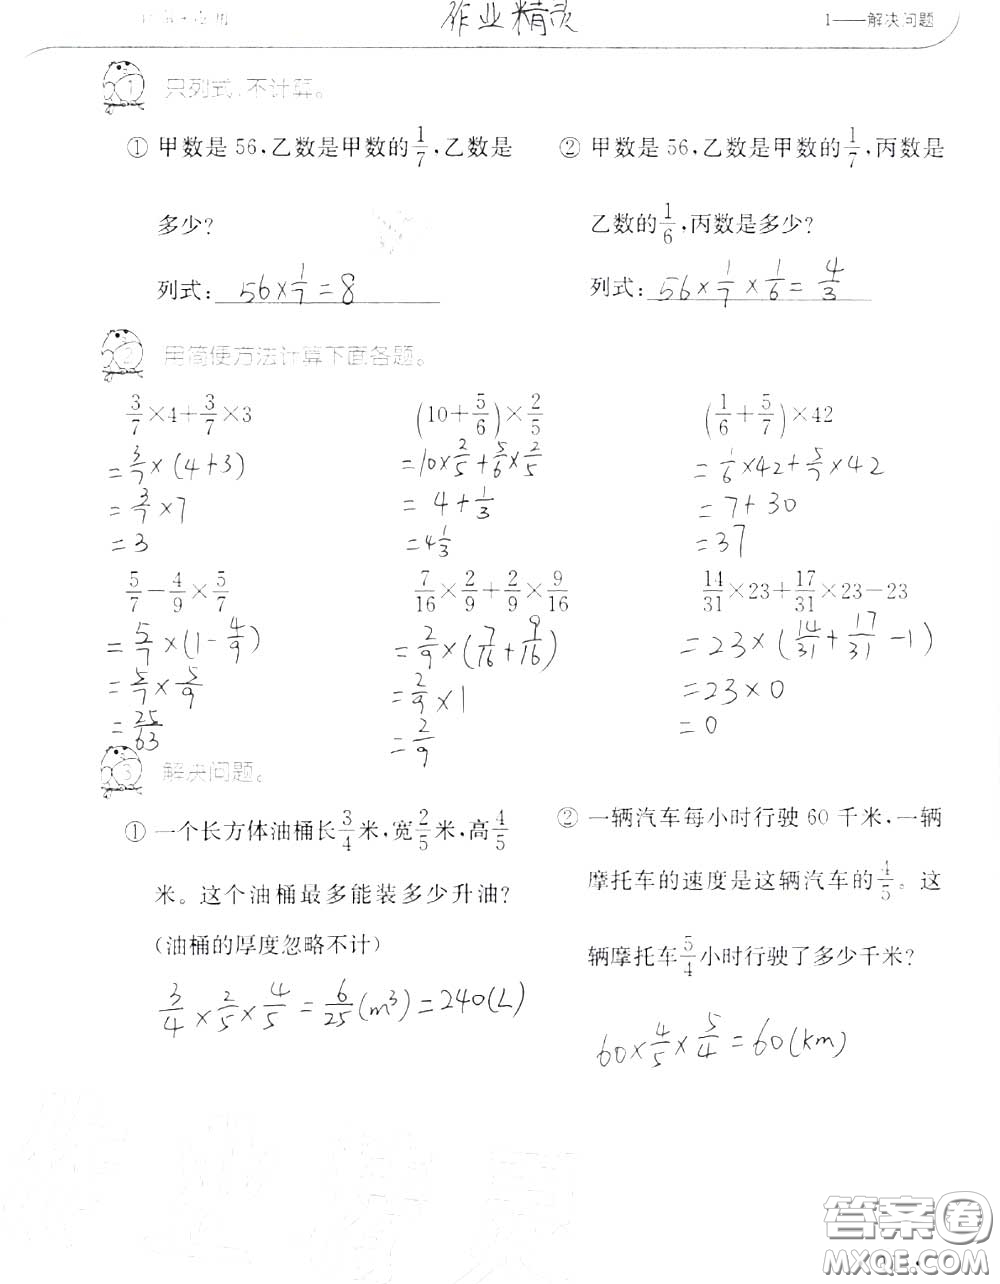 作业精灵
1——解决问题
1 只列式,不计算。
① 甲数是 56,乙数是甲数的1/7,乙数是
多少?
列式: 56×1/7=8
② 甲数是 56,乙数是甲数的1/7,丙数是
乙数的1/6,丙数是多少?
列式: 56×1/7×1/6=4/3
2 用简便方法计算下面各题。
3/7×4+3/7×3
=3/7×(4+3)
=3/7×7
=3
(10+5/6)×2/5
=10×2/5+5/6×2/5
=4+1/3
=4 1/3
(1/6+5/7)×42
=1/6×42+5/7×42
=7+30
=37
5/7-4/9×5/7
=5/7×(1-4/9)
=5/7×5/9
=25/63
7/16×2/9+2/9×9/16
=2/9×(7/16+9/16)
=2/9×1
=2/9
14/31×23+17/31×23-23
=23×(14/31+17/31-1)
=23×0
=0
3 解决问题。
① 一个长方体油桶长3/4米,宽2/5米,高4/5
米。这个油桶最多能装多少升油?
(油桶的厚度忽略不计)
3/4×2/5×4/5=6/25(m³)=240(L)
② 一辆汽车每小时行驶 60 千米,一辆
摩托车的速度是这辆汽车的4/5。这
辆摩托车5/4小时行驶了多少千米?
60×4/5×5/4=60(km)
答案卷
MXQE.COM